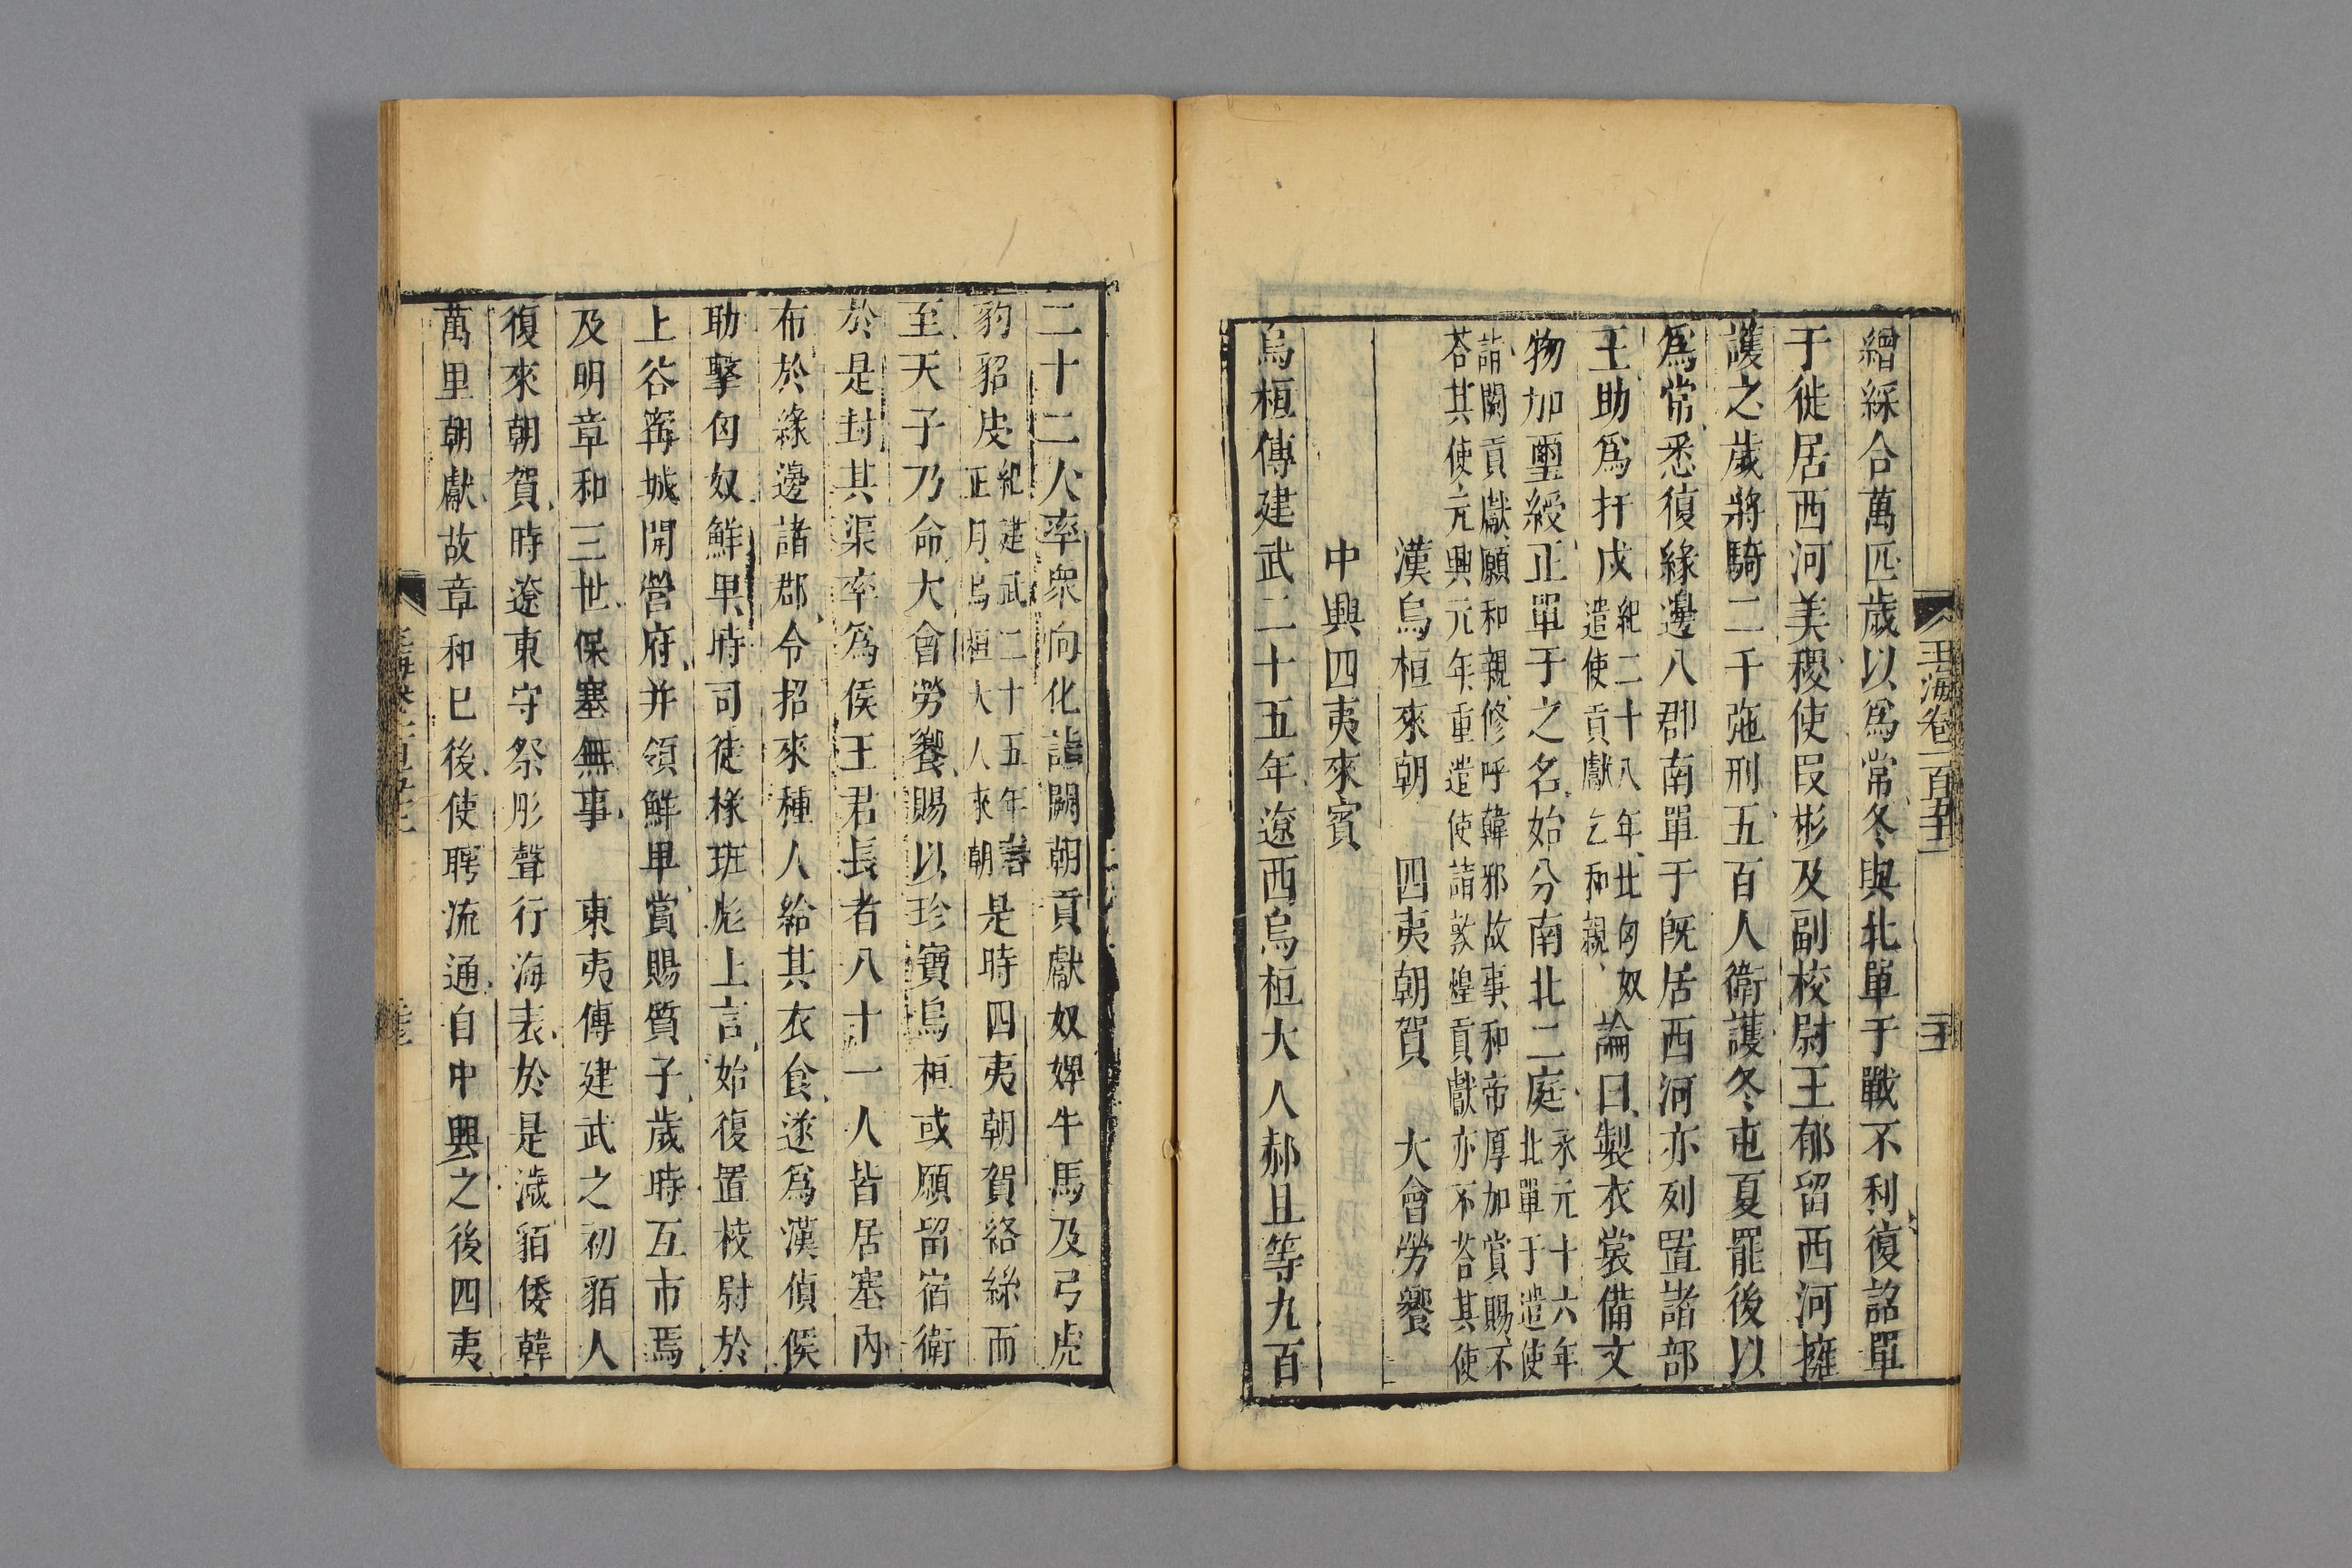 繒綵合萬匹歲以爲常冬與北單于戰不利復詔單
于徙居西河美稷使叚彬及副校尉王郁留西河擁
護之歲將騎二千弛刑五百人衛護冬屯夏罷後以
爲常悉復緣邊八郡南單于旣居西河亦列置諸部
王助爲扞戍紀二十八年北匈奴
遣使貢獻乞和親論曰製衣裳備文
物加璽綬正單于之名始分南北二庭永元十六年
北單于遣使
詣闕貢獻願和親修呼韓邪故事和帝厚加賞賜不
荅其使元興元年重遣使詣敦煌貢獻亦不荅其使
漢烏桓來朝 四夷朝賀 大會勞饗
中興四夷來賓
烏桓傳建武二十五年遼西烏桓大人郝旦等九百
玉海卷一百五十二
二十二人率衆向化詣闕朝貢獻奴婢牛馬及弓虎
豹貂皮紀建武二十五年
正月烏桓大人來朝是時四夷朝賀絡絲而
至天子乃命大會勞饗賜以珍寶烏桓或願留宿衛
於是封其渠率爲侯王君長者八十一人皆居塞內
布於緣邊諸郡令招來種人給其衣食遂爲漢偵候
助擊匈奴鮮卑時司徒椽班彪上言始復置校尉於
上谷寗城開營府并領鮮卑賞賜質子歲時互市焉
及明章和三世保塞無事 東夷傳建武之初貊人
復來朝賀時遼東守祭肜聲行海表於是濊貊倭韓
萬里朝獻故章和已後使聘流通自中興之後四夷